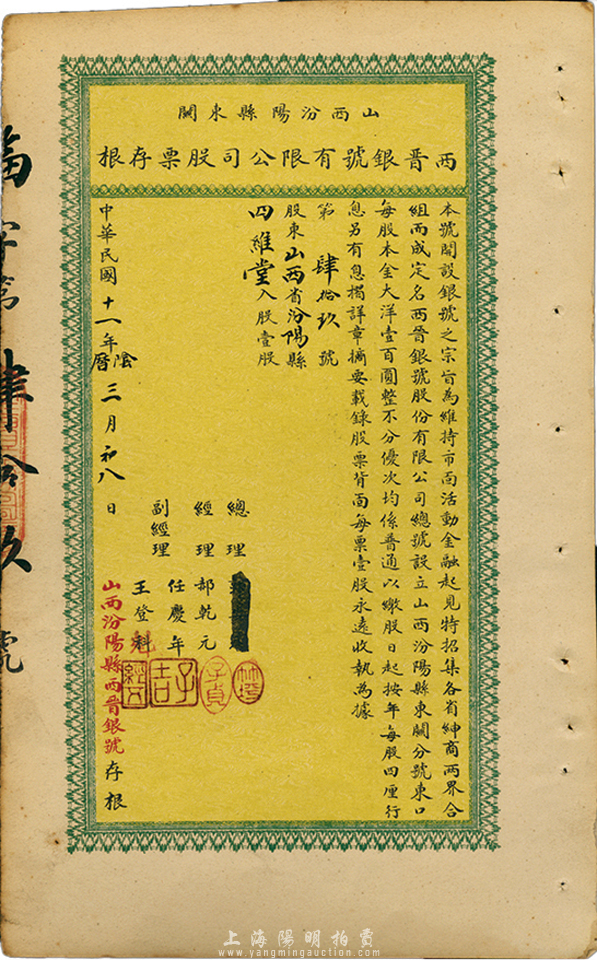 山西汾陽縣東關
西晋銀號有限公司股票存根
本號開設銀號之宗旨為維持市面活動金融起見特招集各省紳商兩界合
組而成定名西晋銀號股份有限公司總號設立山西汾陽縣東關分號東口
每股本金大洋壹百圓整不分優次均係普通以繳股日起按年每股四厘行
息另有息摺詳章摘要載錄股票背面每票壹股永遠收執為據
第肆拾玖號
股東山西省汾陽縣
四維堂入股壹股
總理
經理 郝乾元
任慶年
副經理 王登科
中華民國十一年陰曆三月初八日
山西汾陽縣西晋銀號存根
字第肆拾玖號
上海陽明拍賣
www.yangmingauction.com